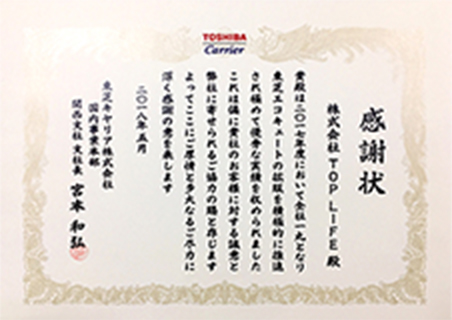 TOSHIBA
Carrier
感謝状
株式会社 TOP LIFE 殿
貴殿は二〇一七年度において全社一丸となり
東芝エコキュートの拡販を積極的に推進
され極めて優秀な実績を収められました
これは偏に貴社のお客様に対する誠意と
弊社に寄せられるご協力の賜と存じます
よってここにご厚情と多大なるご尽力に
深く感謝の意を表します
二〇一八年五月
東芝キヤリア株式会社
国内事業本部
関西支社 支社長 宮本 和弘